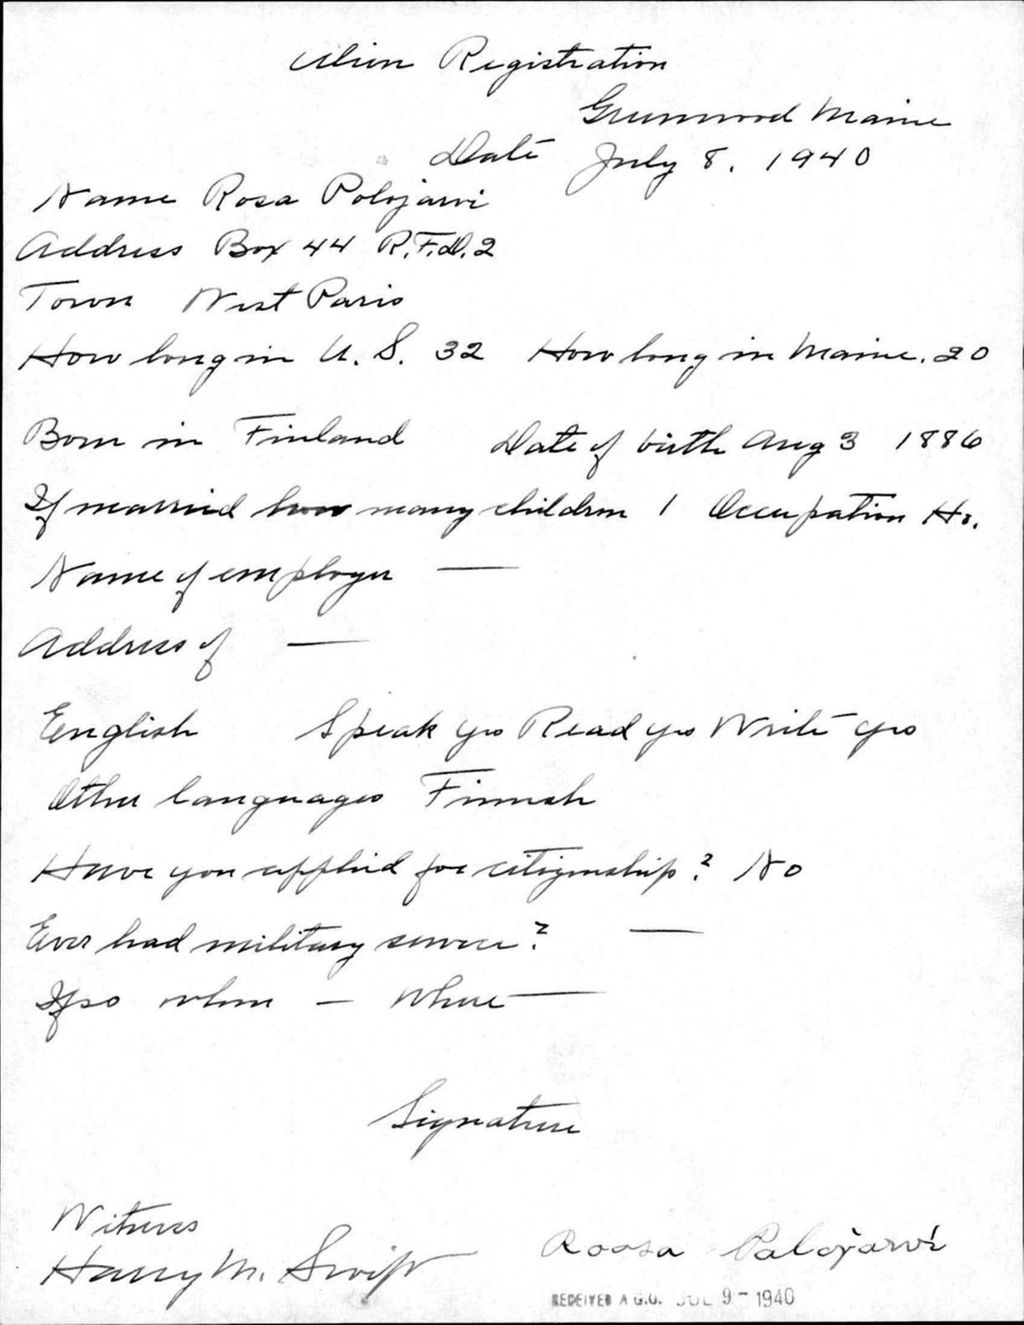 Alien Registration
Greenwood Maine
Date July 8, 1940
Name Rosa Polojarvi
Address Box 44 R.F.D. 2
Town West Paris
How long in U.S. 32 How long in Maine. 20
Born in Finland Date of birth Aug 3 1886
If married how many children 1 Occupation Ho.
Name of employer —
Address of —
English Speak yes Read yes Write yes
Other languages Finnish
Have you applied for citizenship? No
Ever had military service? —
If so when — Where —
Signature
Witness
Harry M. Swift Roosa Palojarvi
RECEIVED A.G.O. JUL 9 - 1940